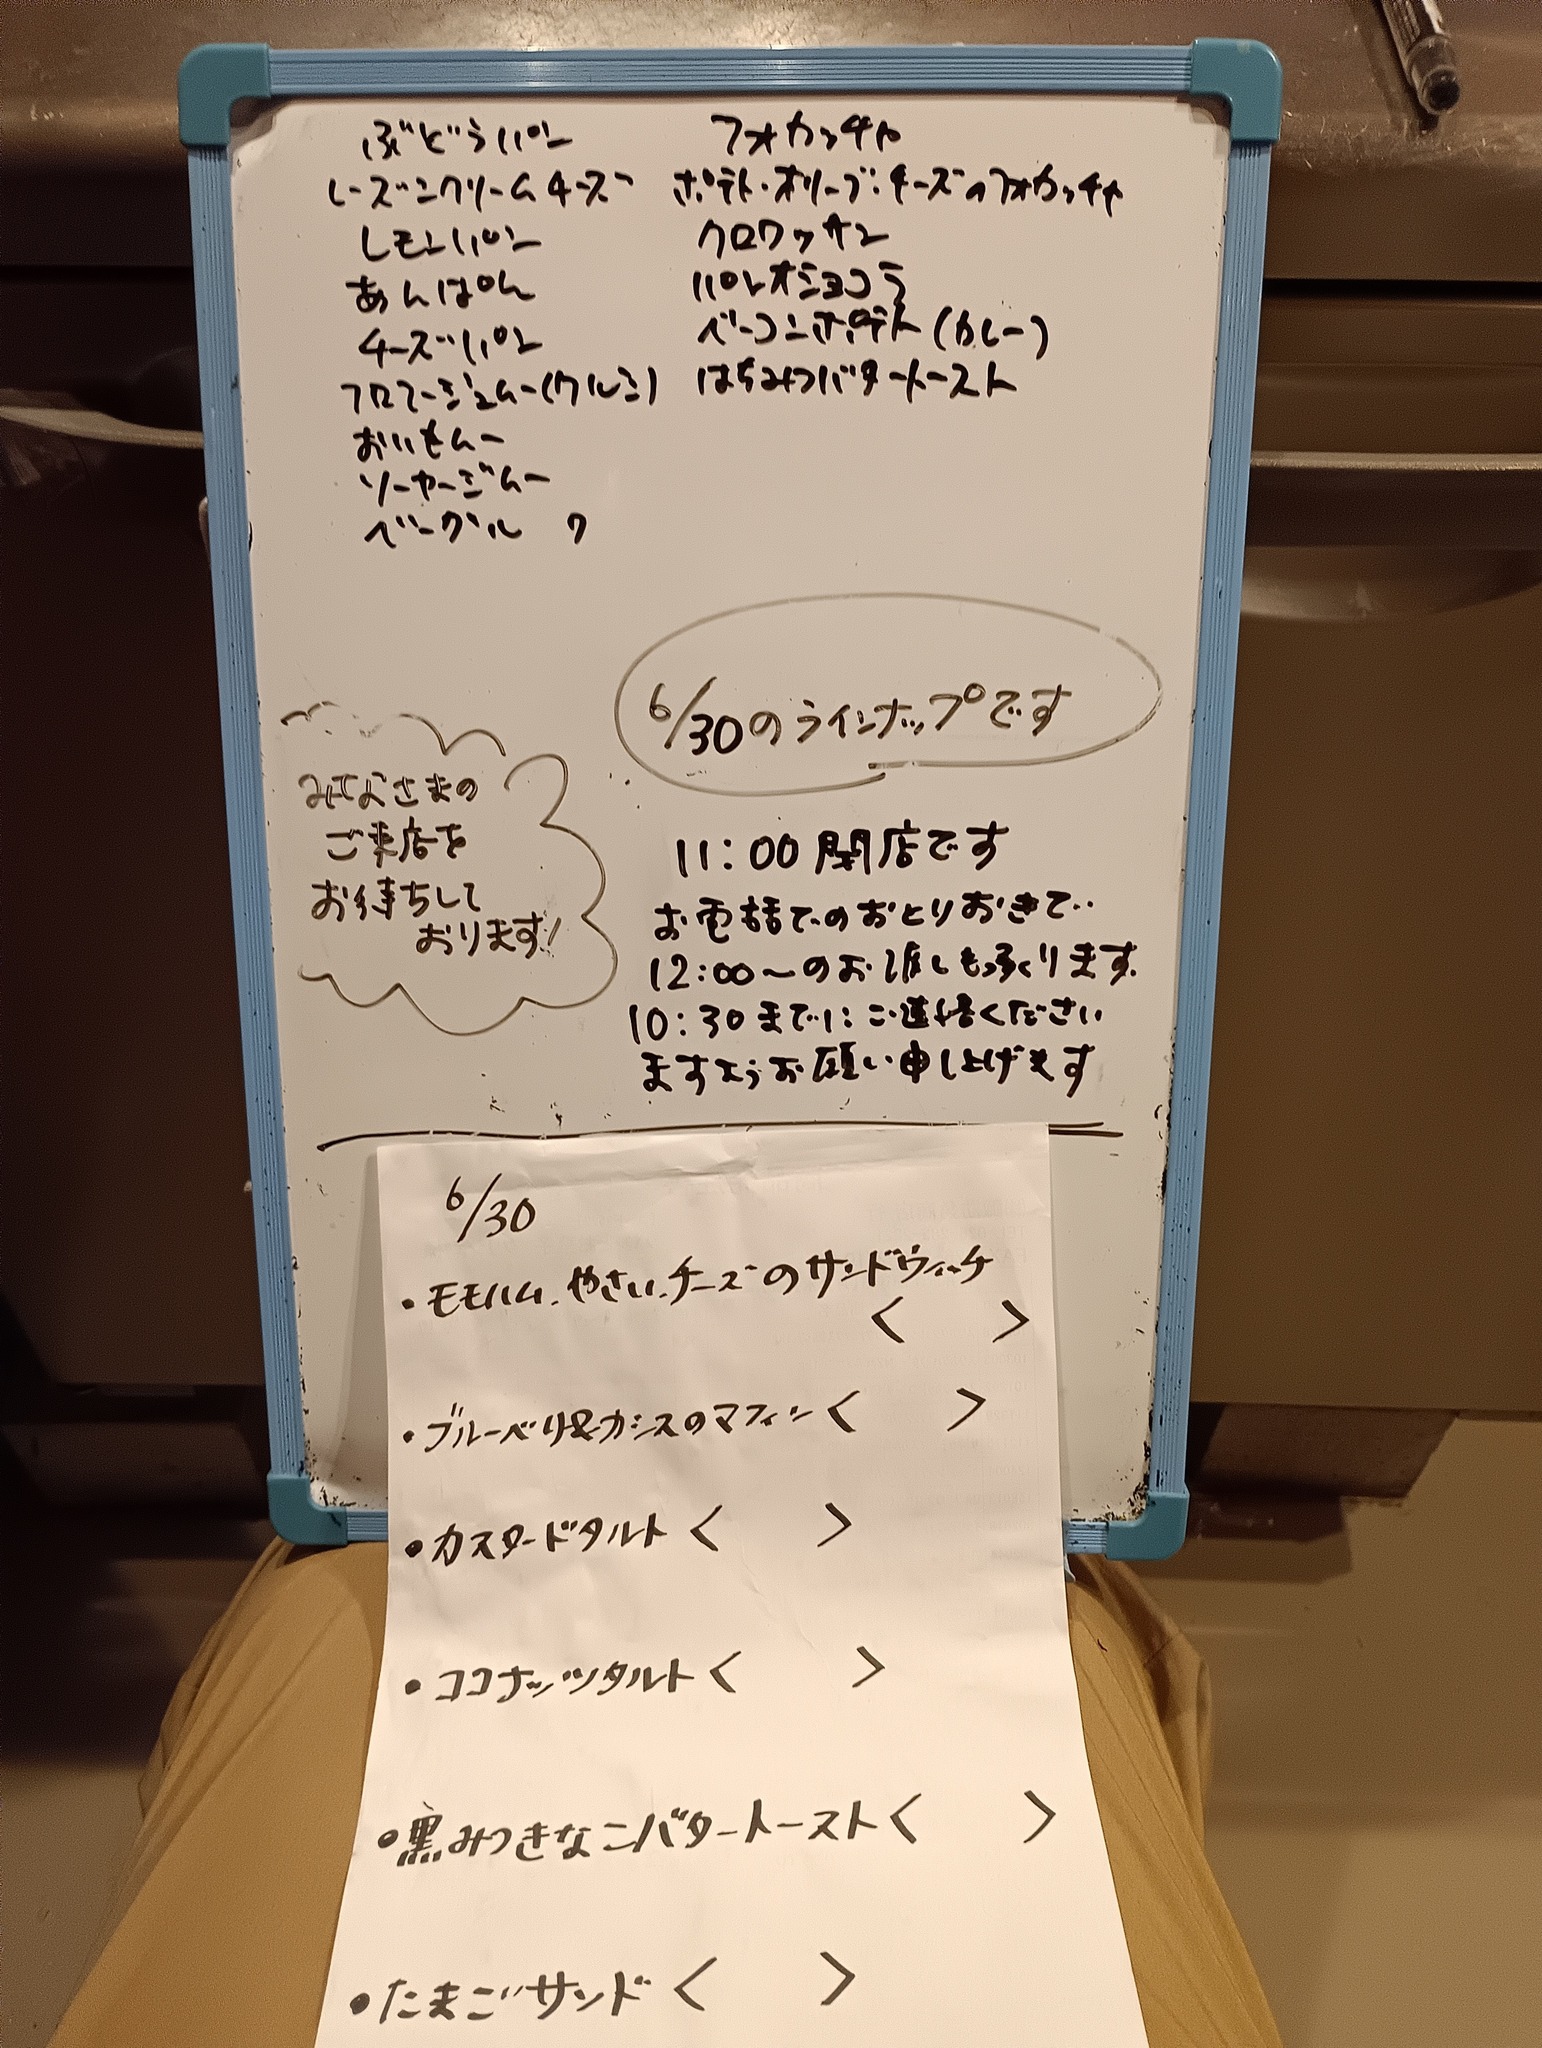 ぶどうパン
レーズンクリームチーズ
レモンパン
あんぱん
チーズパン
フロマージュムー(クルミ)
おいもムー
ソーセージムー
ベーグル ク
フォカッチャ
ポテト・オリーブ・チーズのフォカッチャ
クロワッサン
パンオショコラ
ベーコンポテト(カレー)
はちみつバタートースト
6/30のラインナップです
みなさまの
ご来店を
お待ちして
おります!
11:00 開店です
お電話でのおとりおきで‥
12:00〜のお渡しも承ります.
10:30までに ご連絡ください
ますようお願い申し上げます
6/30
・モモハム、やさい、チーズのサンドウィッチ
< >
・ブルーベリー&カシスのマフィン< >
・カスタードタルト< >
・ココナッツタルト< >
・黒みつきなこバタートースト< >
・たまごサンド< >